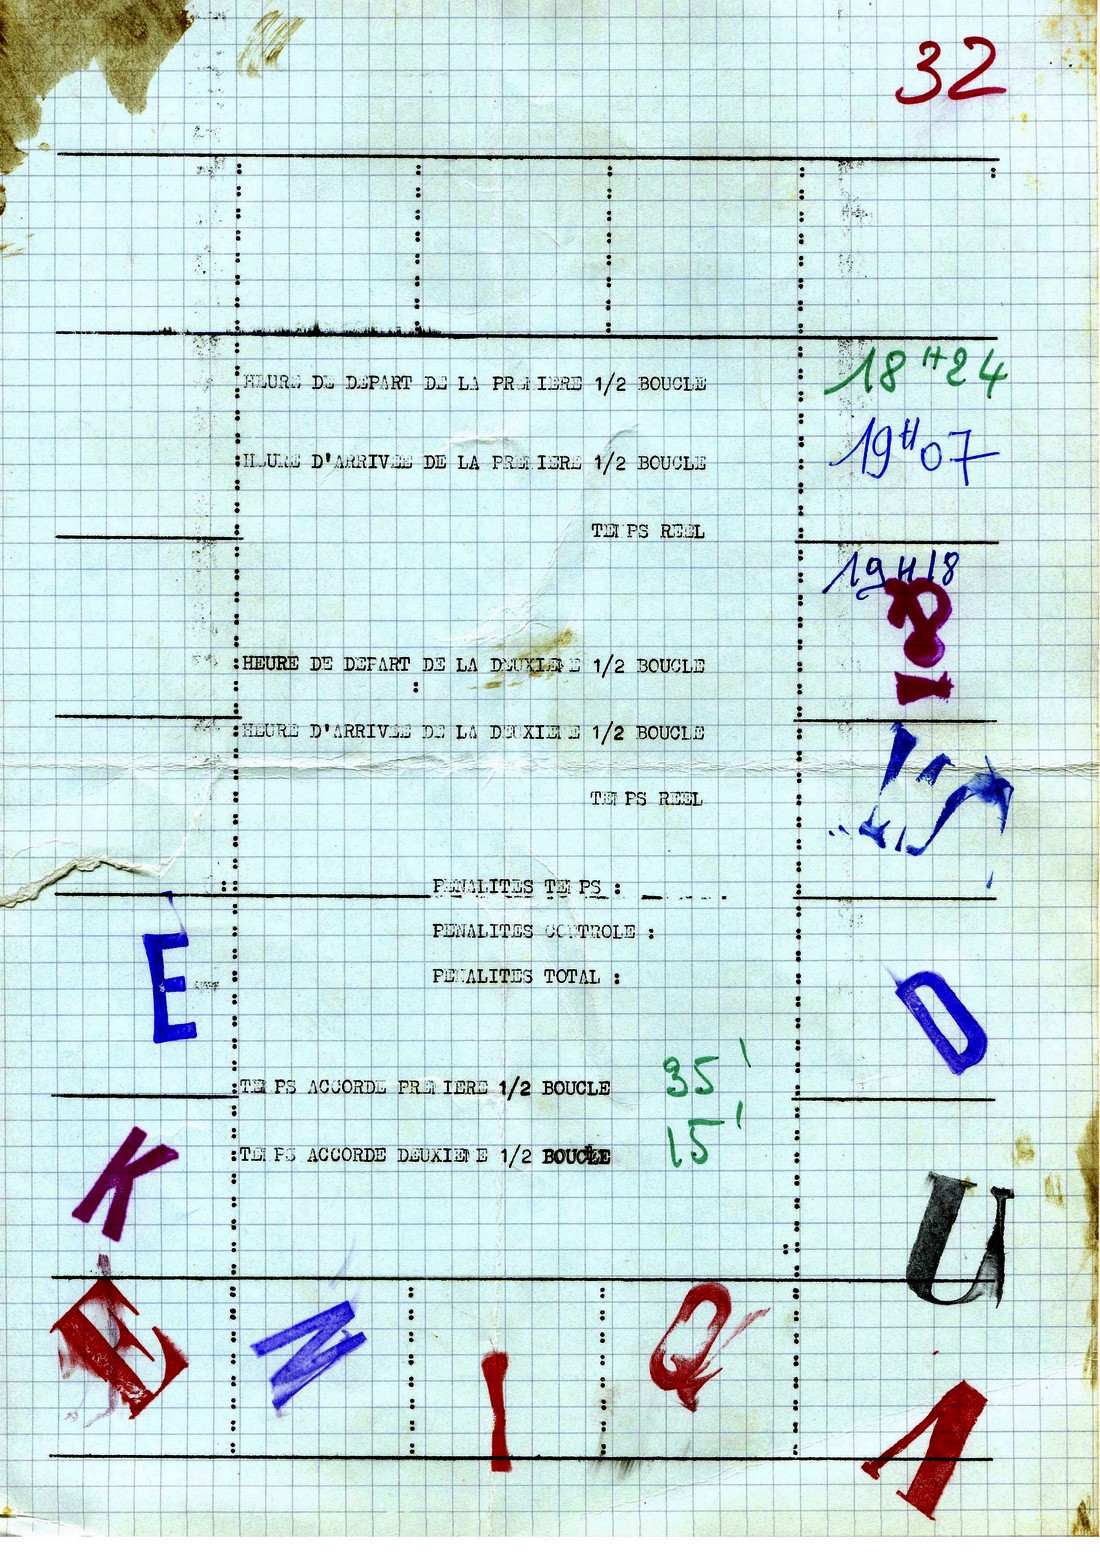 32
HEURE DE DEPART DE LA PREMIERE 1/2 BOUCLE 18H24
HEURE D'ARRIVEE DE LA PREMIERE 1/2 BOUCLE 19H07
TEMPS REEL
19H18
18
HEURE DE DEPART DE LA DEUXIEME 1/2 BOUCLE
:
HEURE D'ARRIVEE DE LA DEUXIEME 1/2 BOUCLE
TEMPS REEL
PENALITES TEMPS :
PENALITES CONTROLE :
PENALITES TOTAL :
E
D
TEMPS ACCORDE PREMIERE 1/2 BOUCLE 35'
TEMPS ACCORDE DEUXIEME 1/2 BOUCLE 15'
K
U
E N I Q
1